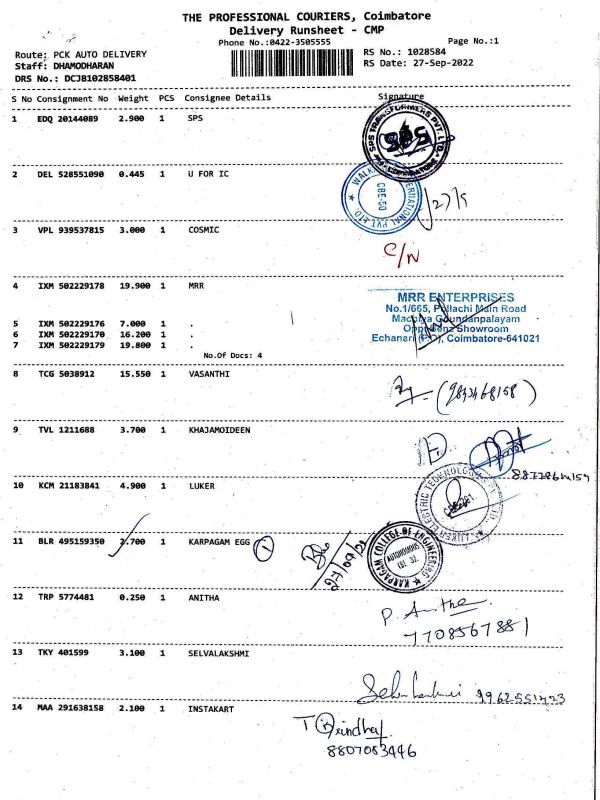 THE PROFESSIONAL COURIERS, Coimbatore
Delivery Runsheet - CMP
Phone No.:0422-3505555
Page No.:1
Route: PCK AUTO DELIVERY
RS No.: 1028584
Staff: DHAMODHARAN
RS Date: 27-Sep-2022
DRS No.: DCJB102858401
S No Consignment No Weight PCS Consignee Details Signature
1 EDQ 20144089 2.900 1 SPS
SPS TRANSFORMERS PVT. LTD.
SPS
COIMBATORE
2 DEL 528551090 0.445 1 U FOR IC
CBE-50
27/9
3 VPL 939537815 3.000 1 COSMIC
C/N
4 IXM 502229178 19.900 1 MRR
MRR ENTERPRISES
No.1/665, Pollachi Main Road
Machiya Goundanpalayam
Showroom
Echanari (P.O), Coimbatore-641021
5 IXM 502229176 7.000 1 .
6 IXM 502229170 16.200 1 .
7 IXM 502229179 19.800 1 .
No.Of Docs: 4
8 TCG 5038912 15.550 1 VASANTHI
9 TVL 1211688 3.700 1 KHAJAMOIDEEN
10 KCM 21183841 4.900 1 LUKER
LUKER ELECTRIC TECHNOLOGY
11 BLR 495159350 2.700 1 KARPAGAM EGG 1
27/09/22
KARPAGAM COLLEGE OF ENGINEERING
AUTONOMOUS
CBE. 32.
12 TRP 5774481 0.250 1 ANITHA
P. Anitha.
7708567881
13 TKY 401599 3.100 1 SELVALAKSHMI
14 MAA 291638158 2.100 1 INSTAKART
8807083446